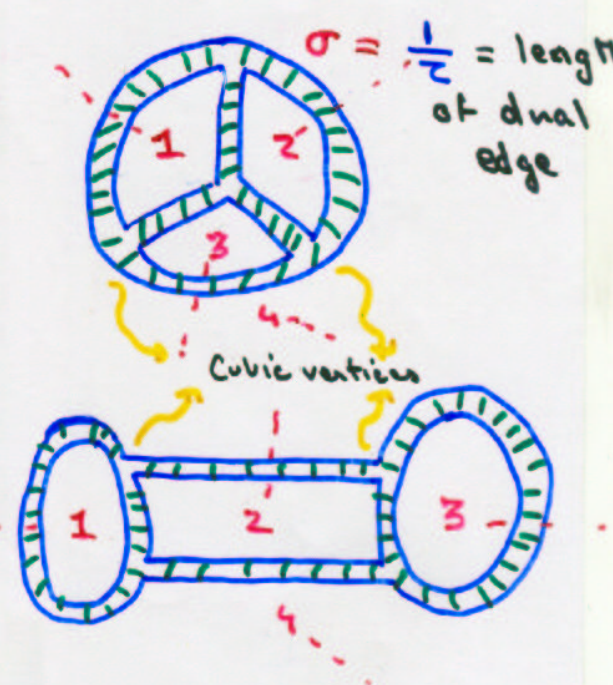 σ = 1/τ = lengt
of dual
edge
1
2
3
4
Cubic vertices
1
2
3
4